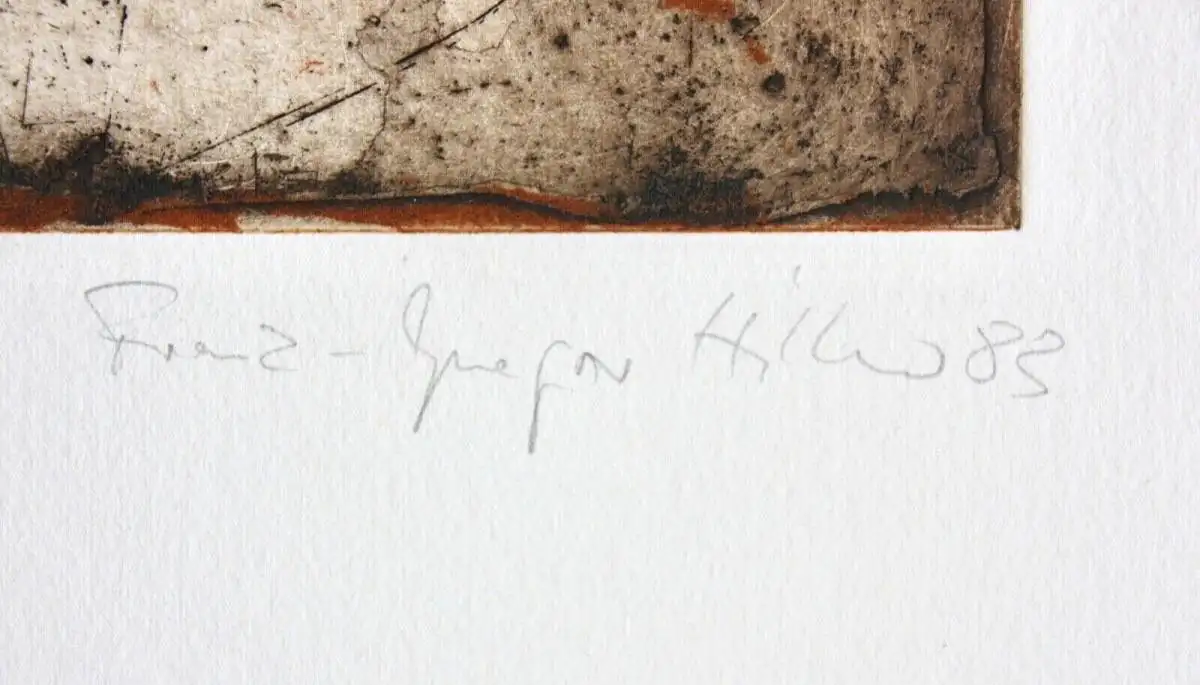 Franz-Gregor Hiltner 83